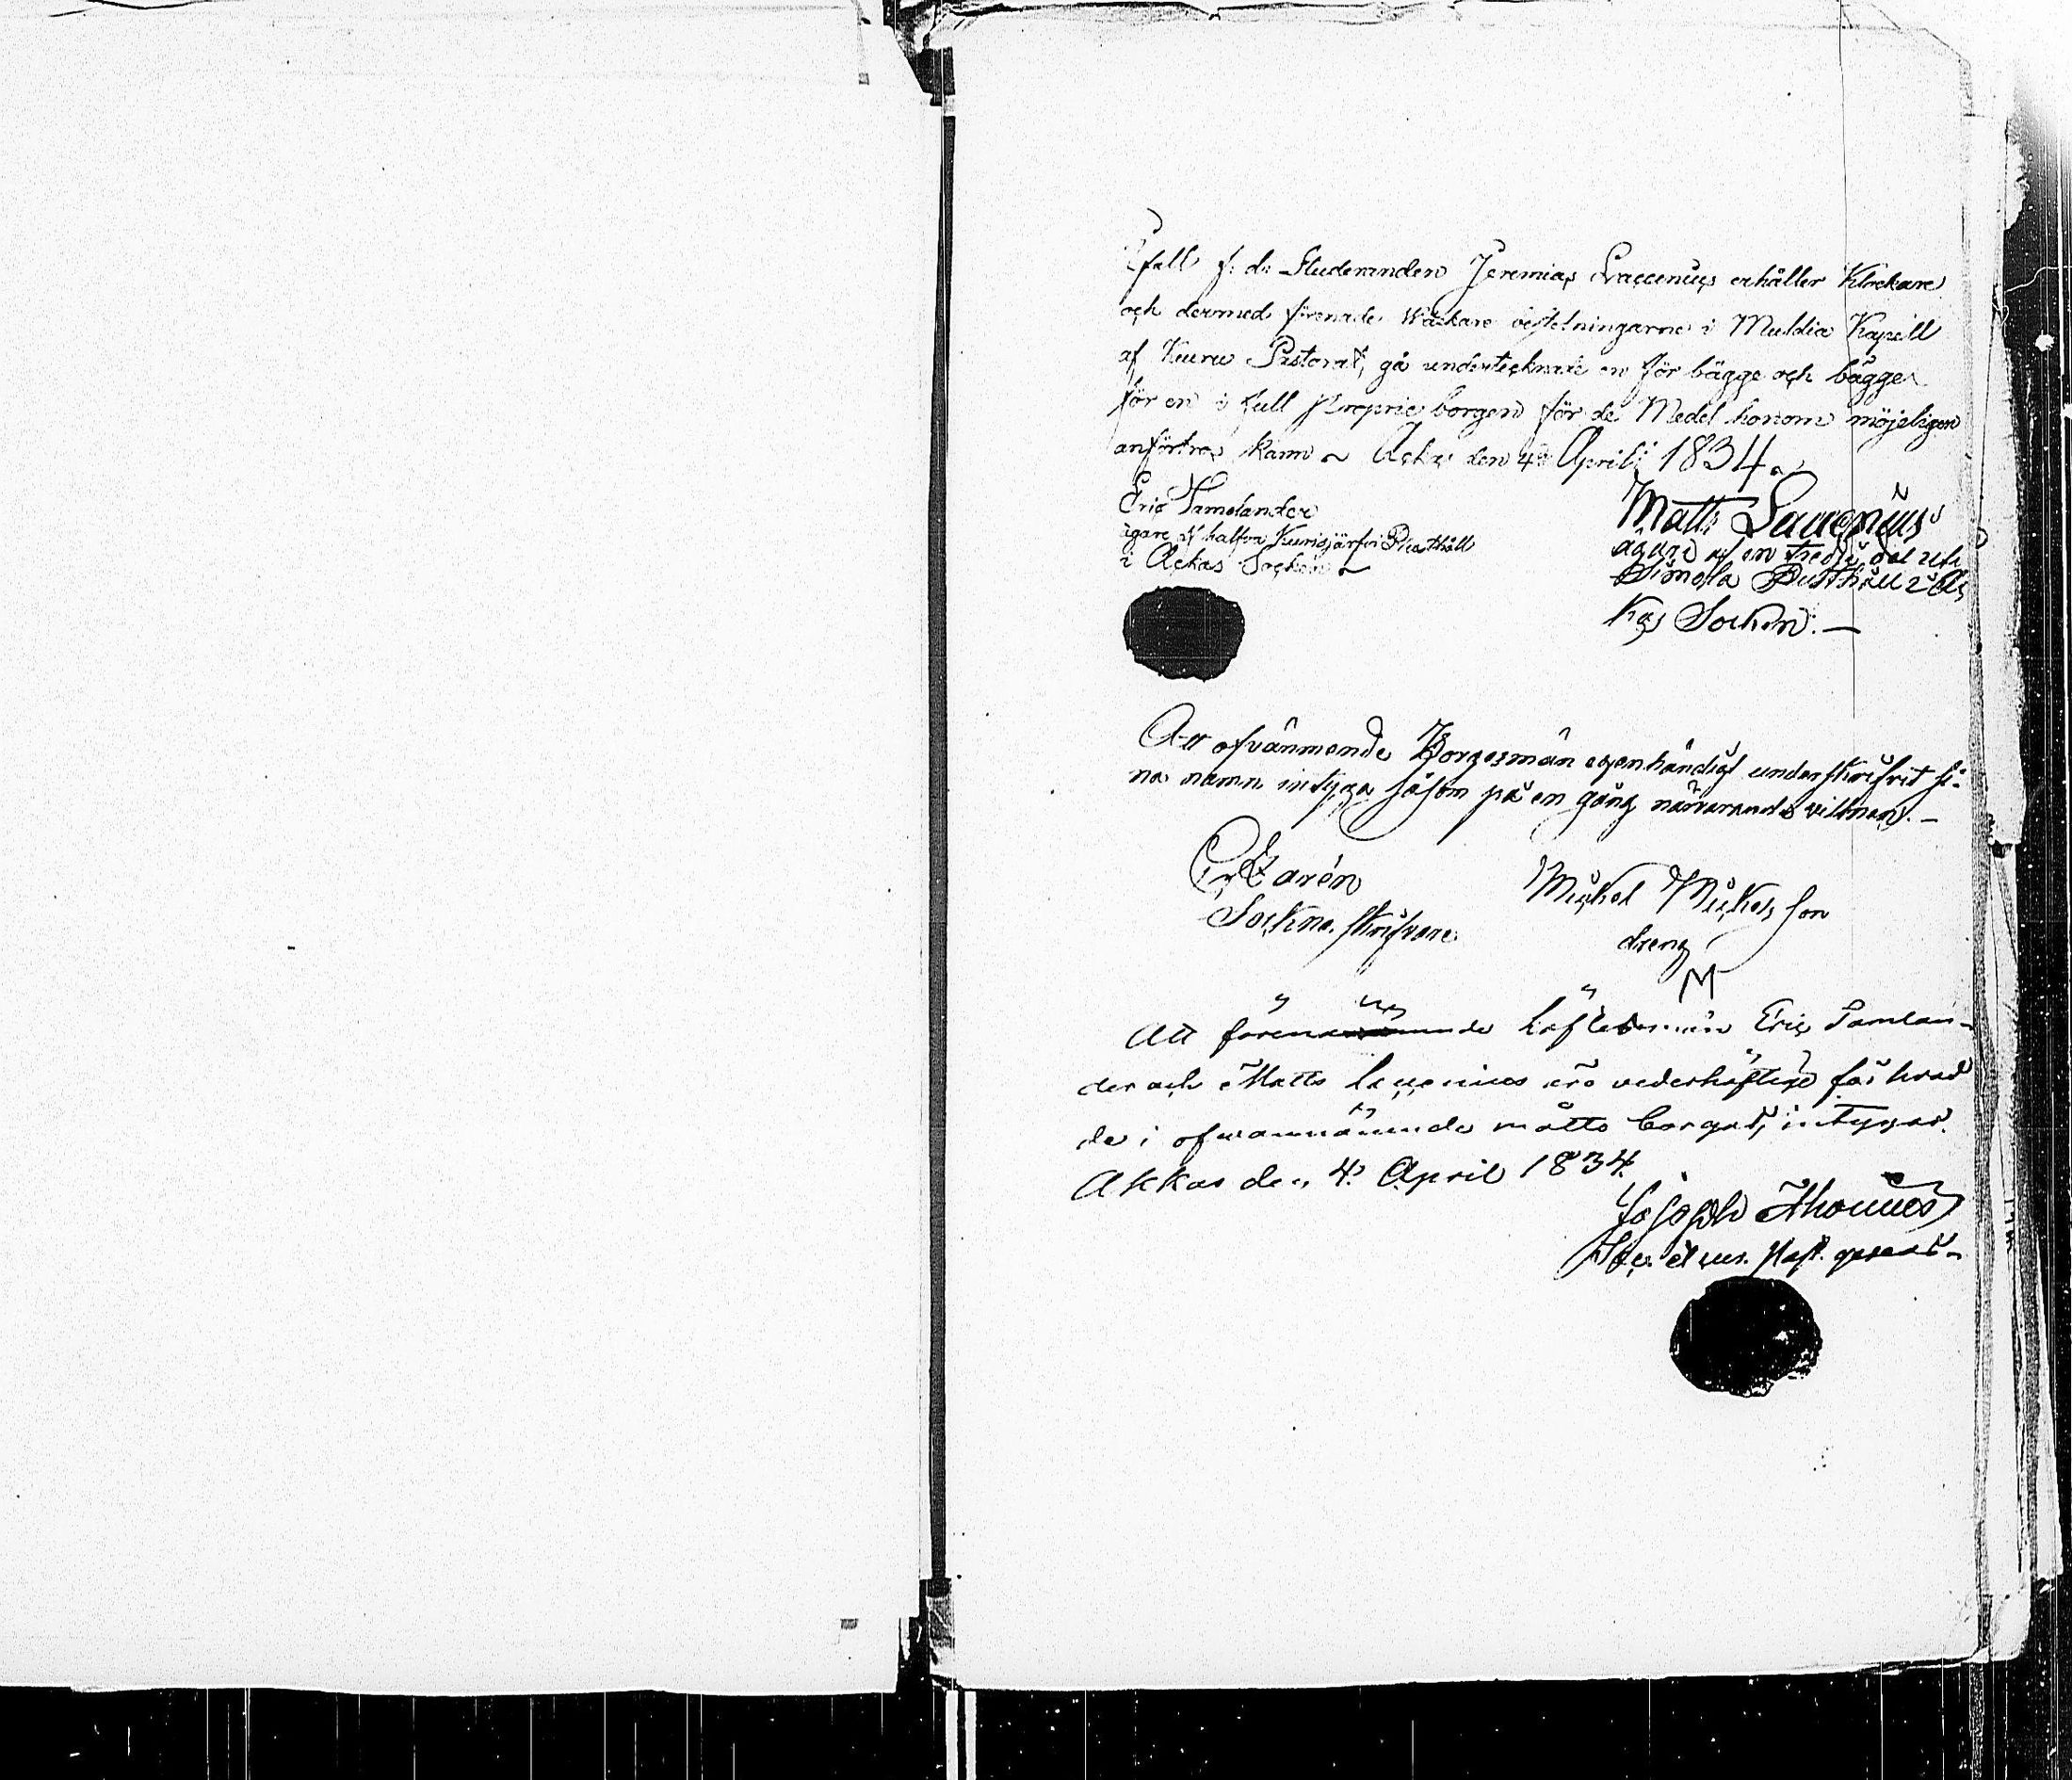 Ifall f: d: Studeranden Jeremias Laccenius erhåller Klockare
och dermed förenade Wäckare bestelningarne i Muldia Kapell
af Kuuru Pastorat, gå undertecknade en för bägge och bägge
för en i full proprie borgen för de Medel honom möjeligen
anförtros kann ~ Ackas den 4de April 1834.
Eric Samelander
ägare af halfva Kurisjärfvi Rusthåll
i Ackas Socken ~
Matts Laccenius
ägare af en tredje del uti
Simola Rusthåll i Ac
kas Socken. —
Att ofvannemnde Borgesmän egenhändigt underskrifvit si-
na namn intyga såsom på en gång närvarande vittnen. —
Er Barén
Sockne skrifvare
Mickel Mickelsson
dreng
M
Att förenämnde löftesmän Eric Samelan-
der och Matts Laccenius äro vederhäftige för hvad
de i ofvannämnde måtto borgat, intygas.
Akkas den 4. April 1834.
Joseph Thomé